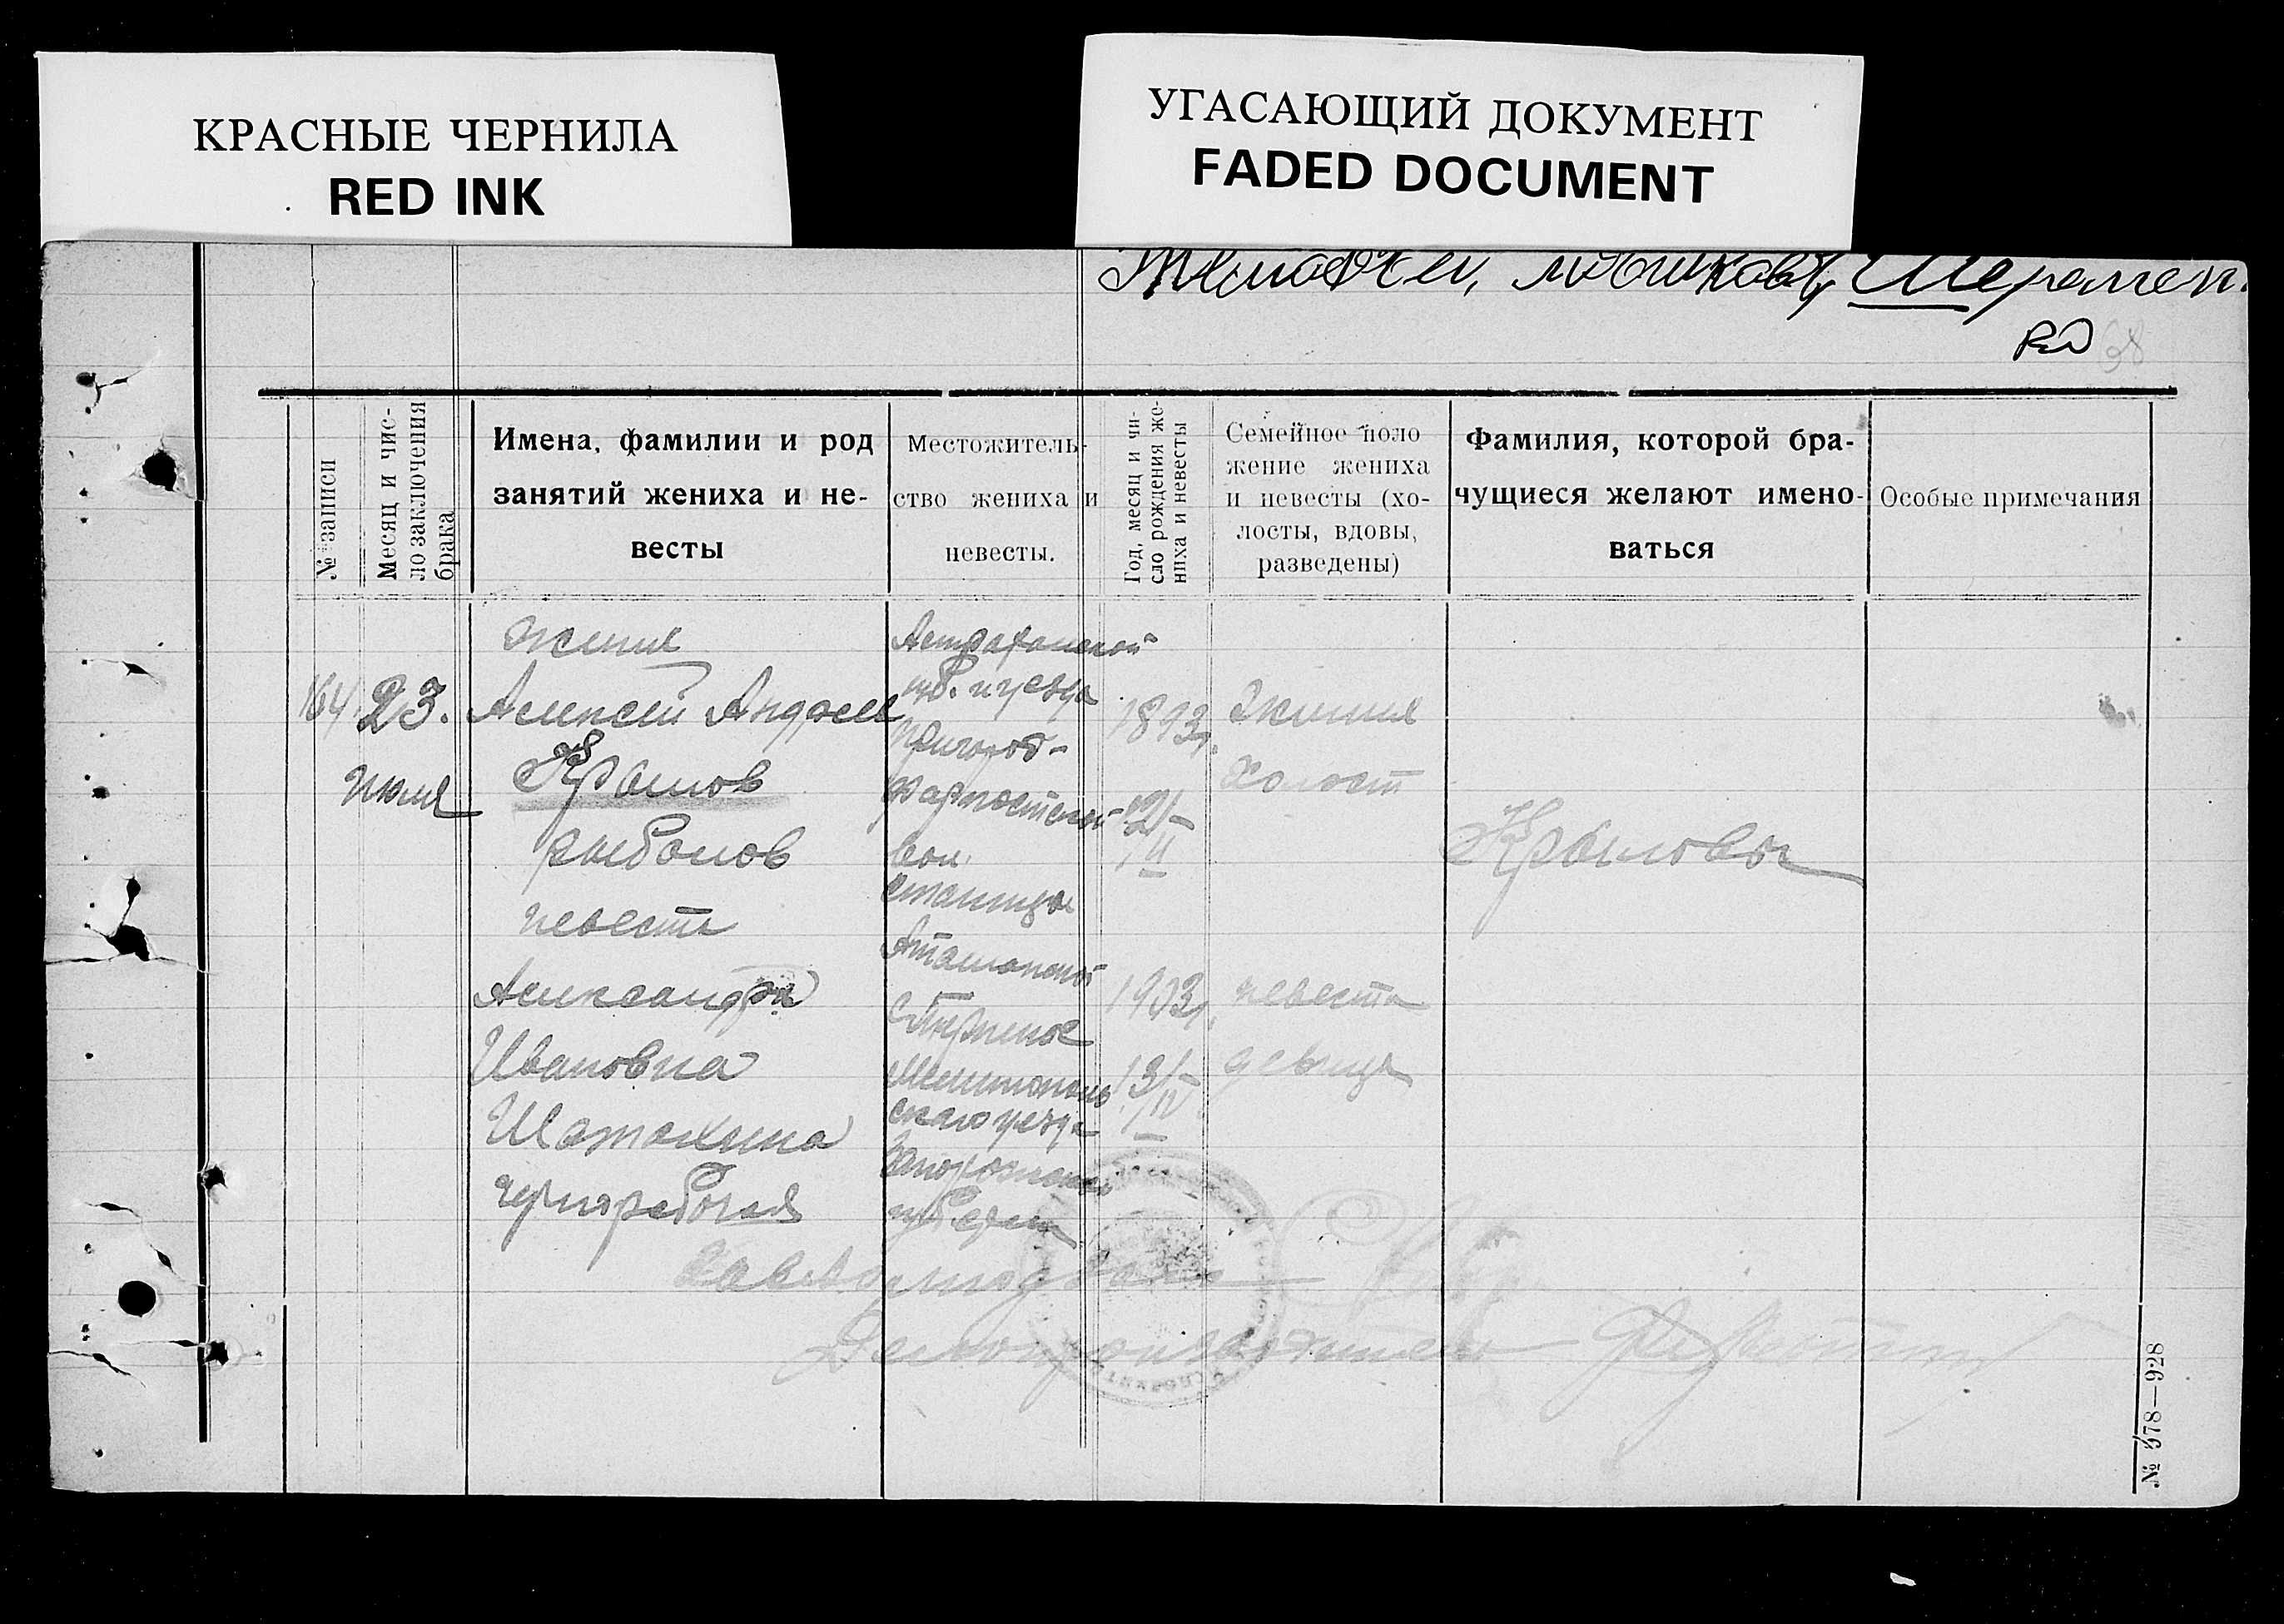 КРАСНЫЕ ЧЕРНИЛА
RED INK
УГАСАЮЩИЙ ДОКУМЕНТ
FADED DOCUMENT
№ записи
Месяц и чис-
ло заключения
брака
Имена, фамилии и род
занятий жениха и не-
весты
Местожитель-
ство жениха и
невесты.
Год, месяц и чи-
сло рождения же-
ниха и невесты
Семейное поло
жение жениха
и невесты (хо-
лосты, вдовы,
разведены)
Фамилия, которой бра-
чущиеся желают имено-
ваться
Особые примечания
164
23.
июля
жених
Алексей Андрее
Крылов
рыболов
невеста
Александра
Ивановна
Шатохина
чернорабочая
Астраханской
губ. и уезда
Пригород-
форпостенской
вол.
станица
Атаманской
Мелитополь
скаго уезда
Запорожской
губернии
1893г.
12/II
1903г.
13/IV
Жених
холост
невеста
девица
Крыловы
Делопроизводитель
№ 578—928